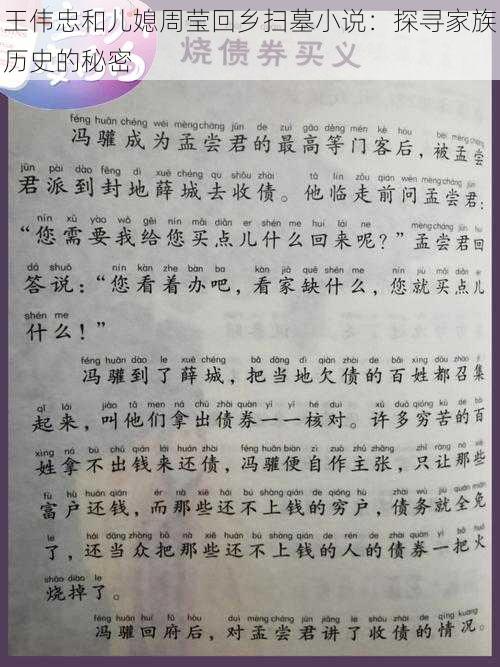 王伟忠和儿媳周莹回乡扫墓小说：探寻家族
历史的秘密
烧债券买义
féng huān chéng wéi mèng cháng jūn de zuì gāo děng mén kè hòu bèi mèng cháng
冯驩成为孟尝君的最高等门客后，被孟尝
jūn pài dào fēng dì xuē chéng qù shōu zhài tā lín zǒu qián wèn mèng cháng jūn
君派到封地薛城去收债。他临走前问孟尝君：
nín xū yào wǒ gěi nín mǎi diǎn er shén me huí lái ne mèng cháng jūn huí
“您需要我给您买点儿什么回来呢？”孟尝君回
dá shuō nín kàn zhe bàn ba kàn jiā quē shén me nín jiù mǎi diǎn er
答说：“您看着办吧，看家缺什么，您就买点儿
shén me
什么！”
féng huān dào le xuē chéng bǎ dāng dì qiàn zhài de bǎi xìng dōu zhào jí
冯驩到了薛城，把当地欠债的百姓都召集
qǐ lái jiào tā men ná chū zhài quàn yī yī hé duì xǔ duō qióng kǔ de bǎi
起来，叫他们拿出债券一一核对。许多穷苦的百
xìng ná bù chū qián lái huán zhài féng huān biàn zì zuò zhǔ zhāng zhǐ ràng nà xiē
姓拿不出钱来还债，冯驩便自作主张，只让那些
fù hù huán qián ér nà xiē hái bú shàng qián de qióng hù zhài wù jiù quán miǎn
富户还钱，而那些还不上钱的穷户，债务就全免
le hái dāng zhòng bǎ nà xiē huán bú shàng qián de rén de zhài quàn yì bǎ huǒ
了，还当众把那些还不上钱的人的债券一把火
shāo diào le
烧掉了。
féng huān huí fǔ hòu duì mèng cháng jūn jiǎng le shōu zhài de qíng kuàng
冯驩回府后，对孟尝君讲了收债的情况。